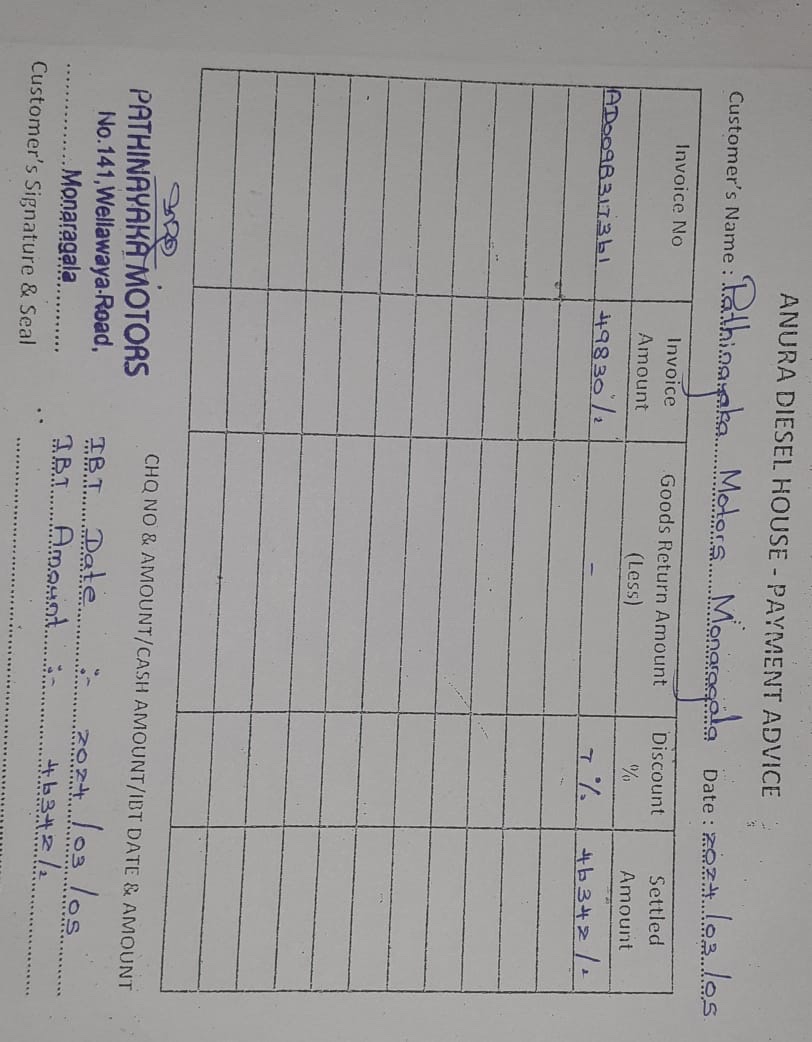 ANURA DIESEL HOUSE - PAYMENT ADVICE
Customer's Name : Pathinayaka Motors Monaragala Date : 2024/03/05
Invoice No
Invoice Amount
Goods Return Amount (Less)
Discount %
Settled Amount
AD009B317361 49830/= - 7% 46342/=
PATHINAYAKA MOTORS
No.141,Wellawaya-Road,
Monaragala
Customer's Signature & Seal
CHQ NO & AMOUNT/CASH AMOUNT/IBT DATE & AMOUNT
IBT Date :- 2024/03/05
IBT Amount :- 46342/=